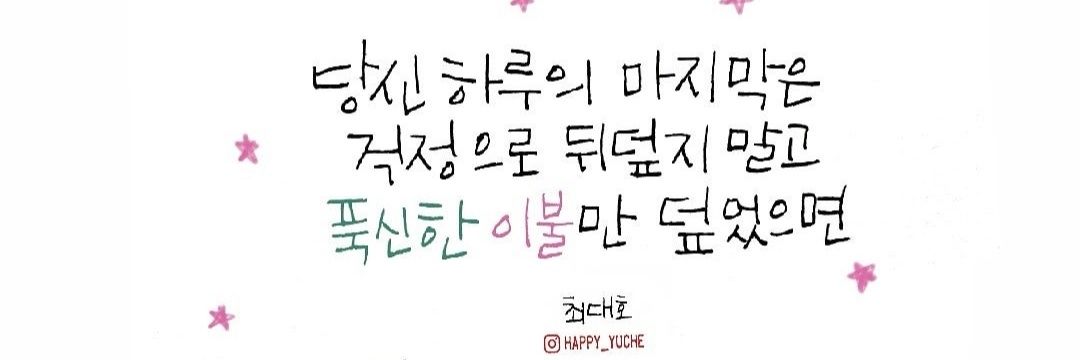 당신 하루의 마지막은
걱정으로 뒤덮지 말고
푹신한 이불만 덮었으면
최대호
HAPPY_YUCHE